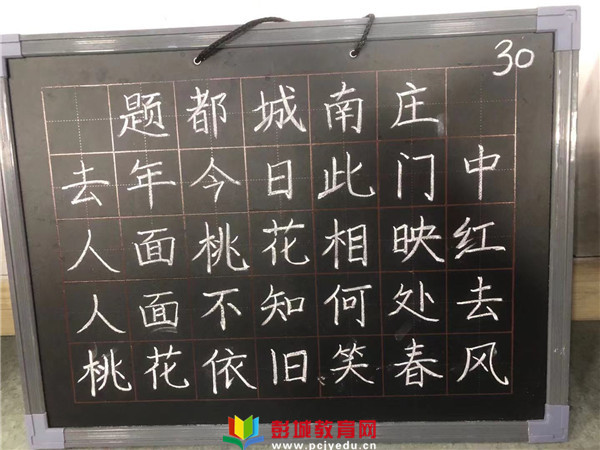 30
题都城南庄
去年今日此门中
人面桃花相映红
人面不知何处去
桃花依旧笑春风
彭城教育网
www.pcjyedu.cn